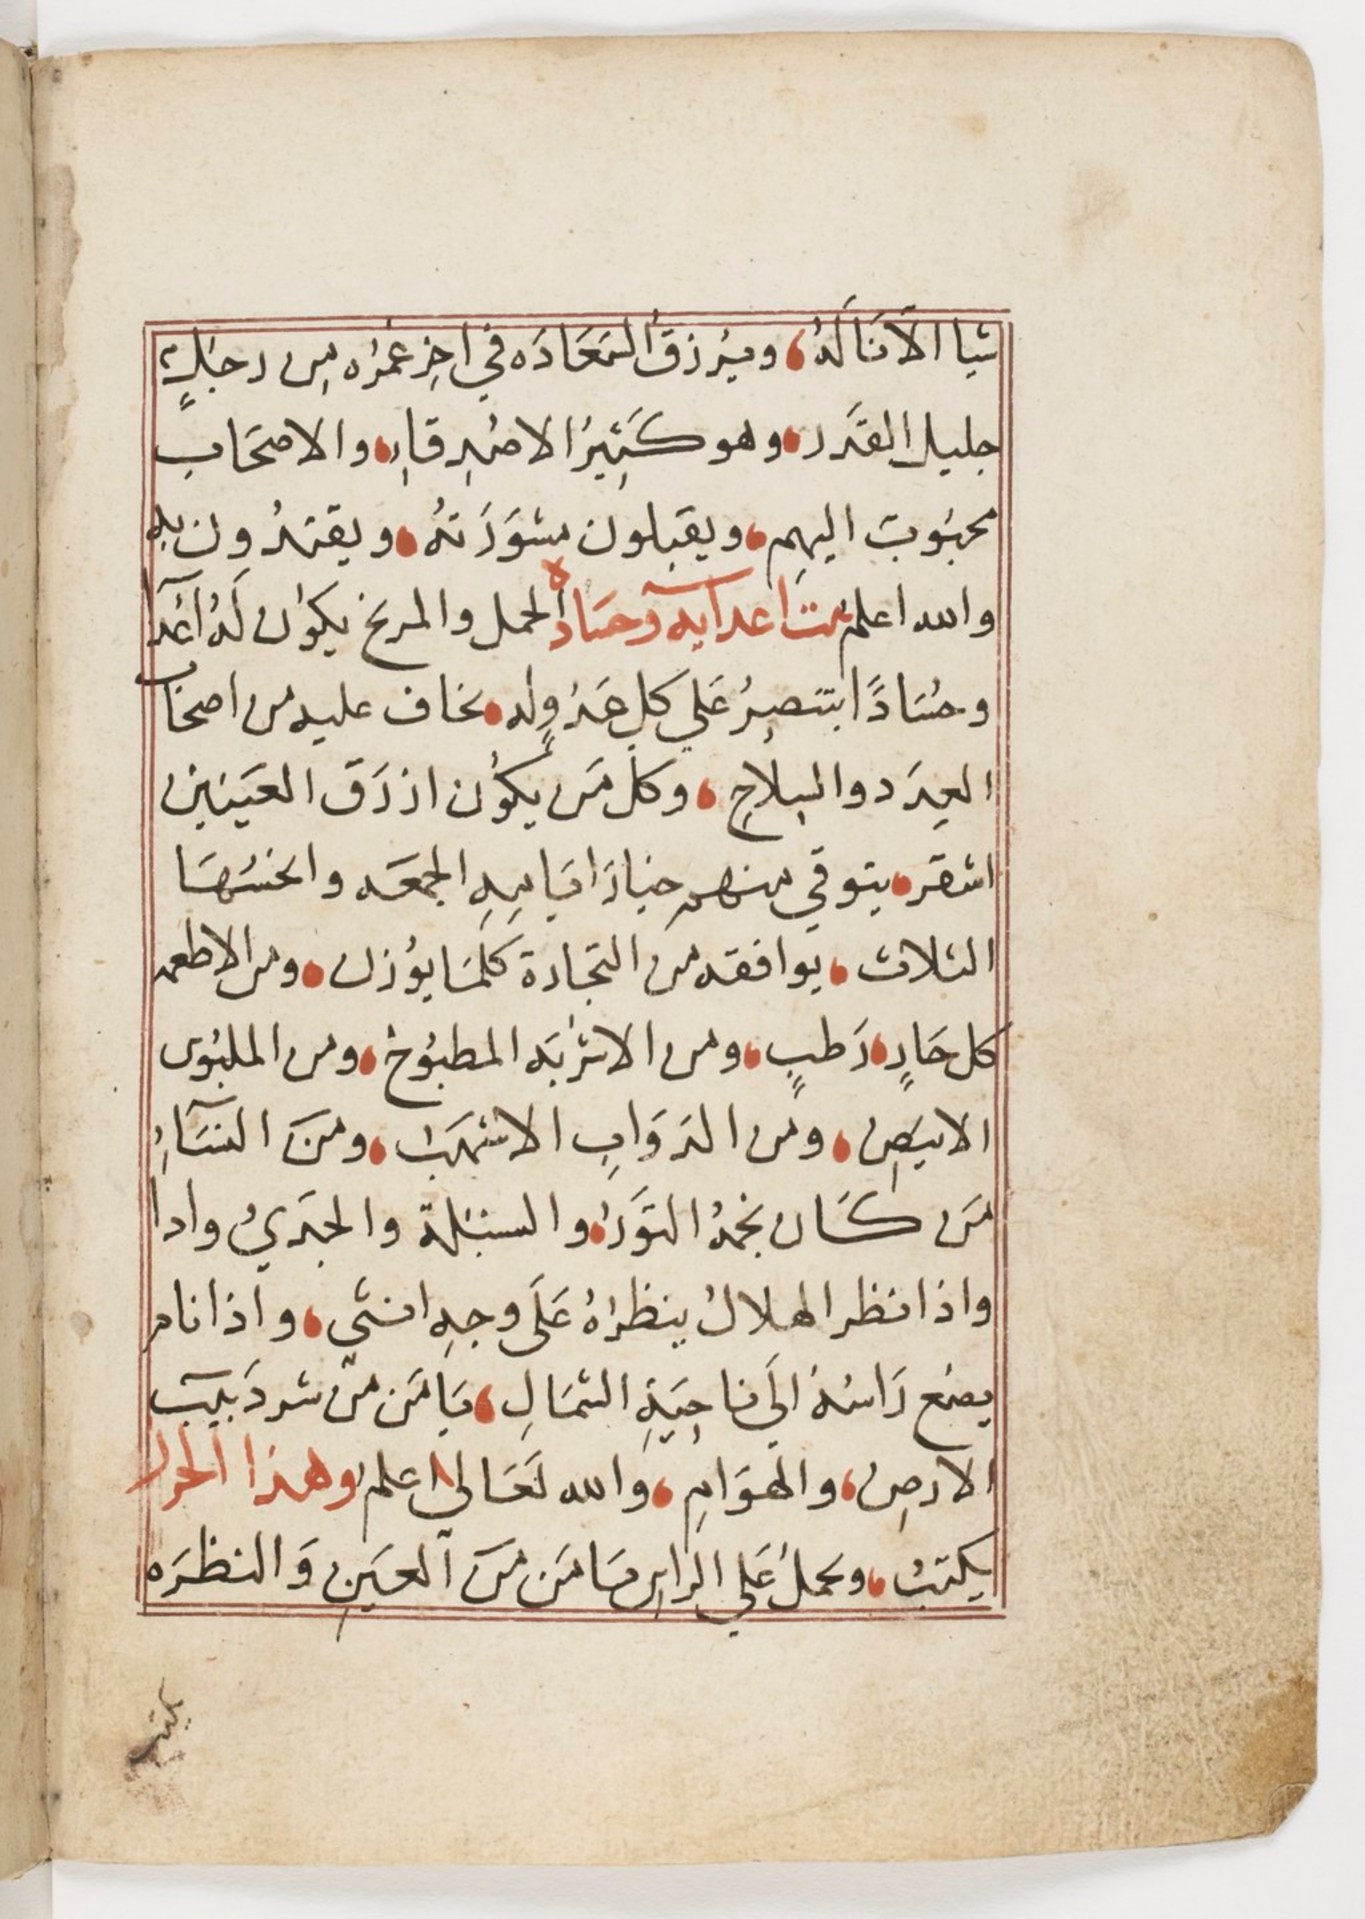 شيا الَّا نَالَهُ، ويُرزقُ السَعَادَه في اخِرِ عُمْرُه مِن رجُلٍ
جليل القَدر، وهو كَثِيرُ الاصْدِقاءِ، والاصحَاب
محبُوبٌ اليهِم، ويقبلون مشوَرَتهُ، ويقتدُون بهِ
والله اعلم بيت اعدايه وحسَادُه الحمل والمريخ يكون لَهُ اعْدَآ
وحُسَادًا ينتصِرُ عَلي كلِ عَدُوٍ له، يخاف عليه من اصحَاب
العِدَد والسِلاحِ، وكل مَن يكوُن ازرَق العَينَين
اشقر، يتوقي منهم خيارَ ايَامِهِ الجمعَه وانحسُهَا
الثلاث، يوافقه من التجَارة كلمَا يوُزن، ومن الاطعمه
كل حَارٍ، رَطبٍ، ومن الاشربَه المطبُوخ، ومن الملبُوس
الابيَض، ومن الدوَابِ الاشهَب، ومنَ النسَآءِ
مَن كَان نجمهُ الثَورُ، والسنبُلة والجَديُ واذا
واذا نظر الهلالُ ينظرُهُ عَلَي وجهِ انثي، واذا نام
يضَع رَاسَهُ الَي ناحِيَةِ الشمَالِ، يَامَن مِن شر دَبيب
الارضِ، والهوَامِ، والله تعَالي اعلم وهذا الحرز
يكتبُ، ويحملُ عَلي الراسِ يَامَن منَ العَينِ وَالنظرَه
يكتب